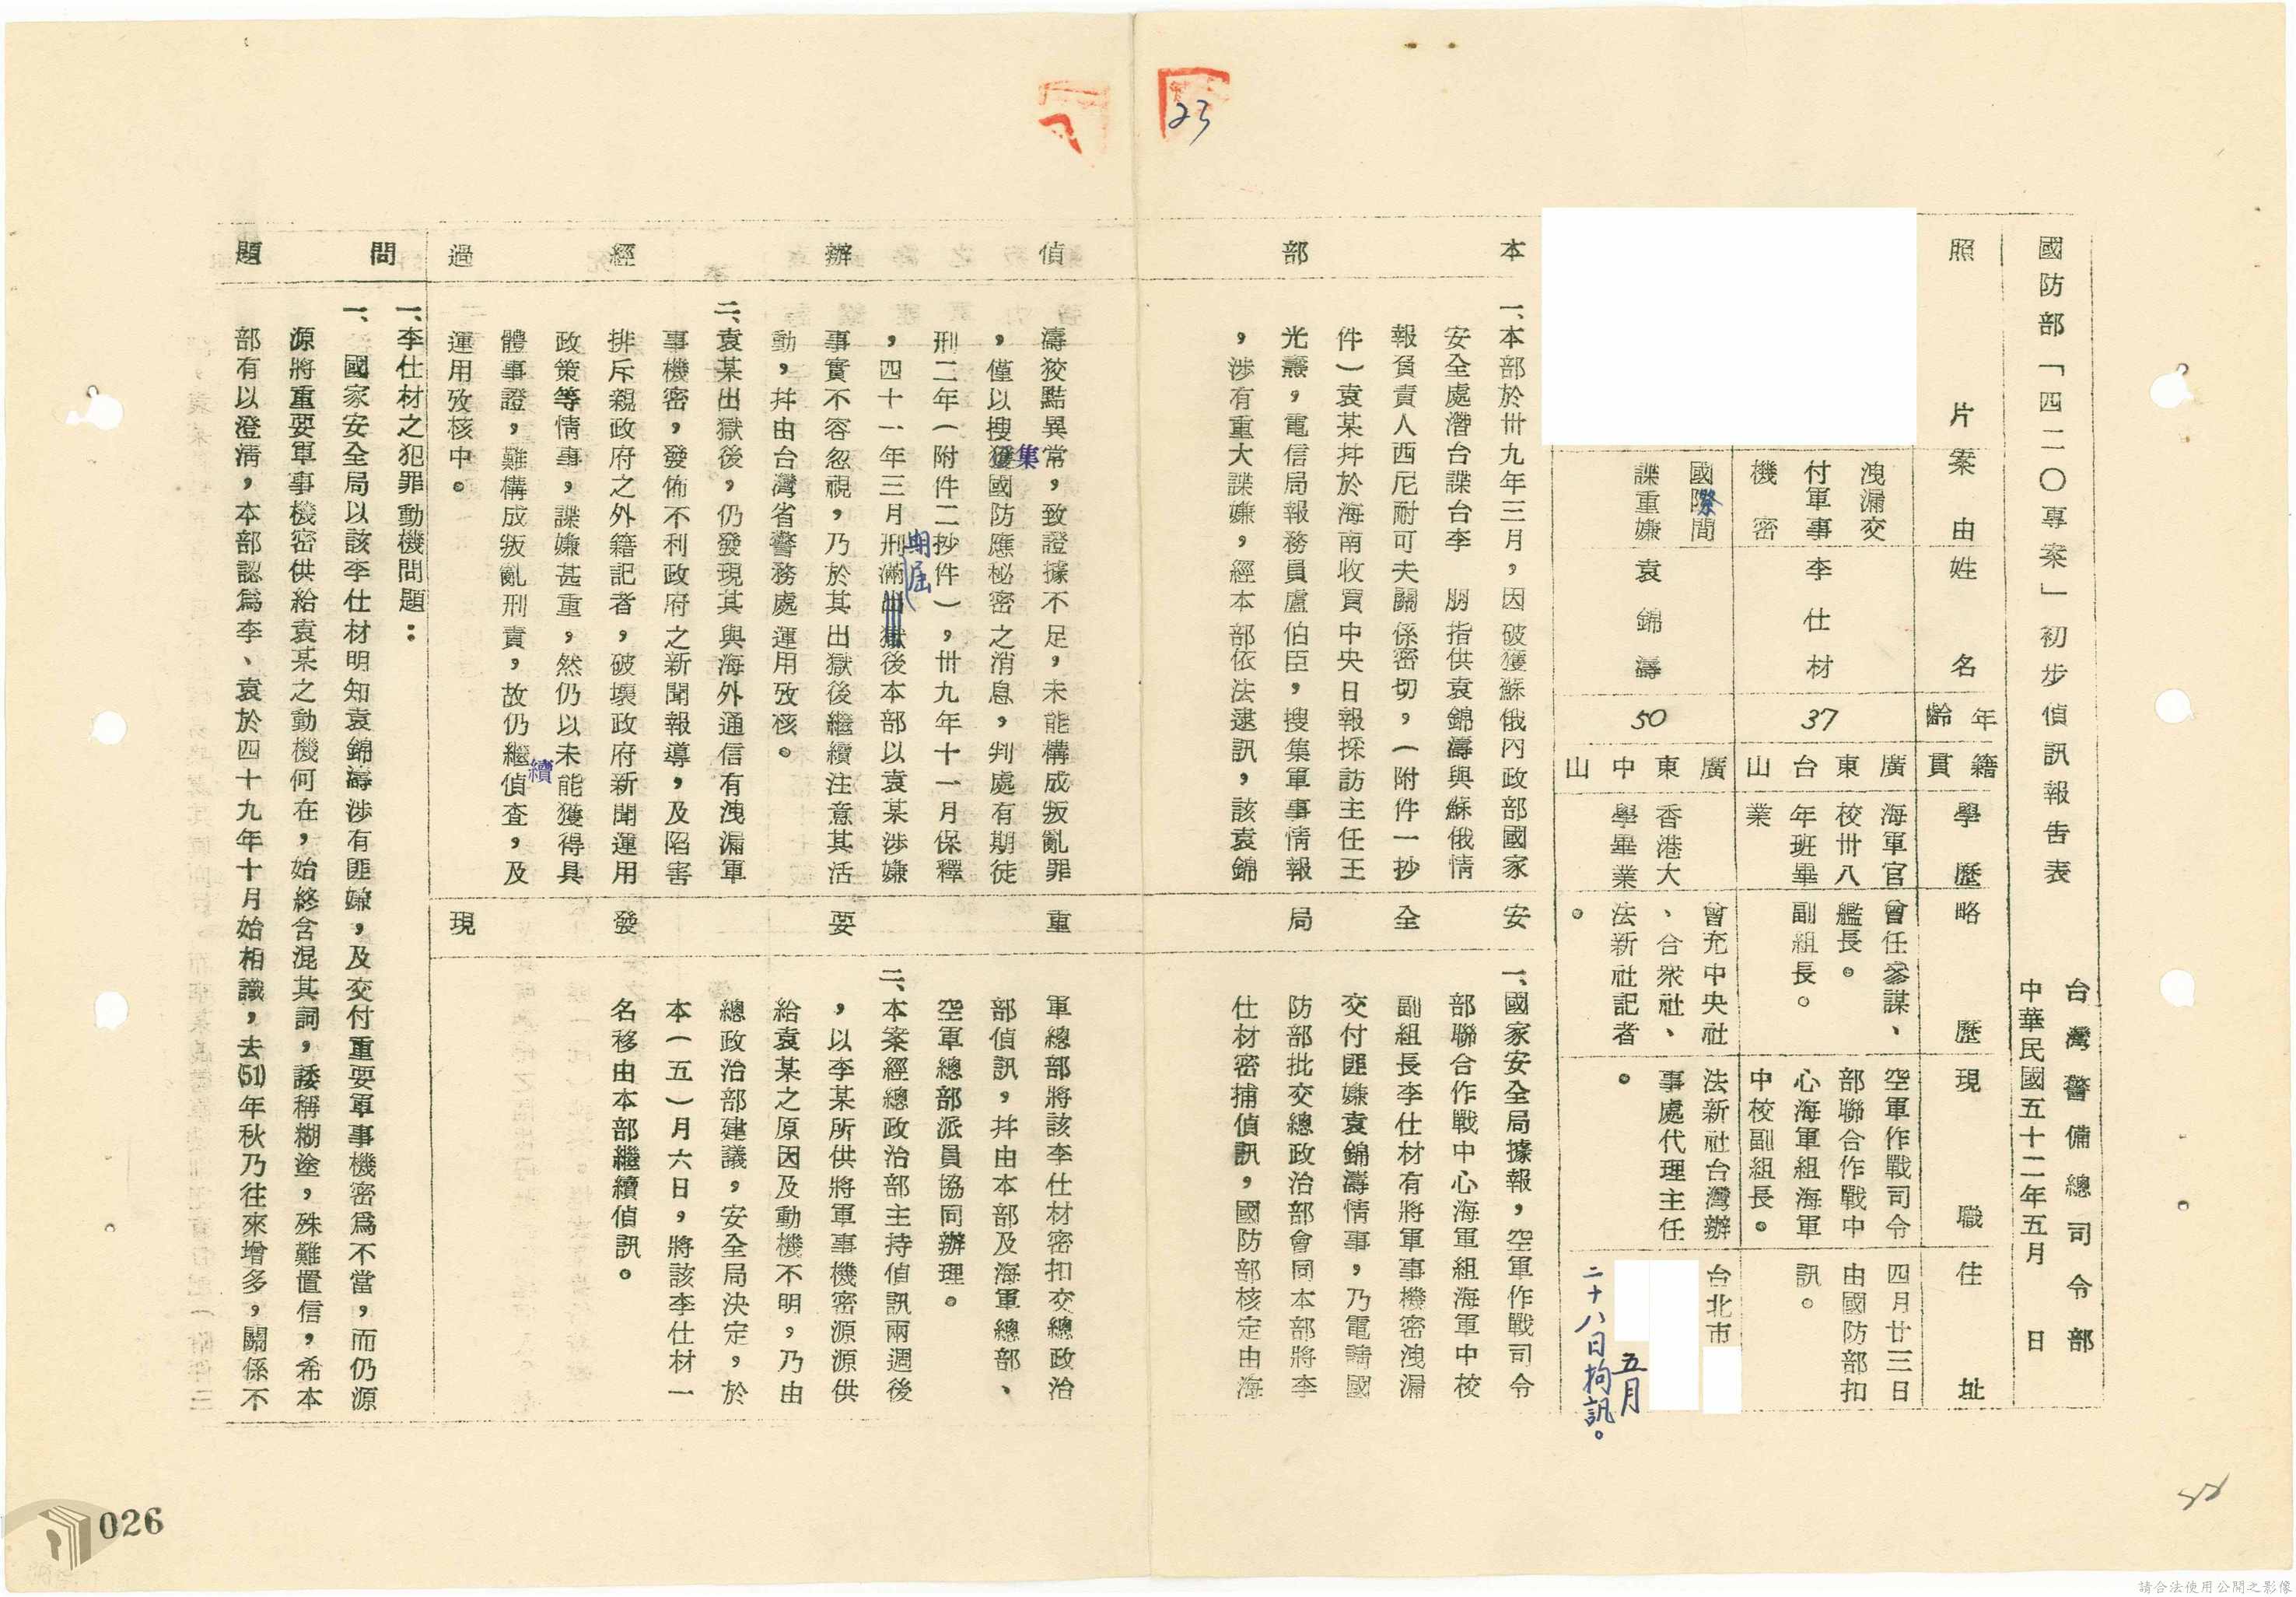 國防部「四二〇專案」初步偵訊報告表
台灣警備總司令部
中華民國五十二年五月　日
照片
案由
姓名
年齡
籍貫
學歷
略歷
現職
住址
洩漏交
付軍事
機密
李仕材
37
廣東台山
海軍官
校卅八
年班畢
業
曾任參謀、
艦長。
副組長。
空軍作戰司令
部聯合作戰中
心海軍組海軍
中校副組長。
四月廿三日
由國防部扣
訊。
國際間
諜重嫌
袁錦濤
50
廣東中山
香港大
學畢業
曾充中央社
、合眾社、
法新社記者
。
法新社台灣辦
事處代理主任
。
台北市
五月
二十八日拘訊。
本部偵辦經過
一、本部於卅九年三月，因破獲蘇俄內政部國家
安全處潛台諜台李　朋指供袁錦濤與蘇俄情
報負責人西尼耐可夫關係密切，（附件一抄
件）袁某并於海南收買中央日報採訪主任王
光燾，電信局報務員盧伯臣，搜集軍事情報
，涉有重大諜嫌，經本部依法逮訊，該袁錦
濤狡黠異常，致證據不足，未能構成叛亂罪
，僅以搜集國防應秘密之消息，判處有期徒
刑二年（附件二抄件），卅九年十一月保釋
，四十一年三月刑期屆滿後本部以袁某涉嫌
事實不容忽視，乃於其出獄後繼續注意其活
動，并由台灣省警務處運用攷核。
二、袁某出獄後，仍發現其與海外通信有洩漏軍
事機密，發佈不利政府之新聞報導，及陷害
排斥親政府之外籍記者，破壞政府新聞運用
政策等情事，諜嫌甚重，然仍以未能獲得具
體事證，難構成叛亂刑責，故仍繼續偵查，及
運用攷核中。
安全局重要發現
一、國家安全局據報，空軍作戰司令
部聯合作戰中心海軍組海軍中校
副組長李仕材有將軍事機密洩漏
交付匪嫌袁錦濤情事，乃電請國
防部批交總政治部會同本部將李
仕材密捕偵訊，國防部核定由海
軍總部將該李仕材密扣交總政治
部偵訊，并由本部及海軍總部、
空軍總部派員協同辦理。
二、本案經總政治部主持偵訊兩週後
，以李某所供將軍事機密源源供
給袁某之原因及動機不明，乃由
總政治部建議，安全局決定，於
本（五）月六日，將該李仕材一
名移由本部繼續偵訊。
問題
一、李仕材之犯罪動機問題：
一、國家安全局以該李仕材明知袁錦濤涉有匪嫌，及交付重要軍事機密為不當，而仍源
源將重要軍事機密供給袁某之動機何在，始終含混其詞，諉稱糊塗，殊難置信，希本
部有以澄清，本部認為李、袁於四十九年十月始相識，去(51)年秋乃往來增多，關係不
23
026
請合法使用公開之影像